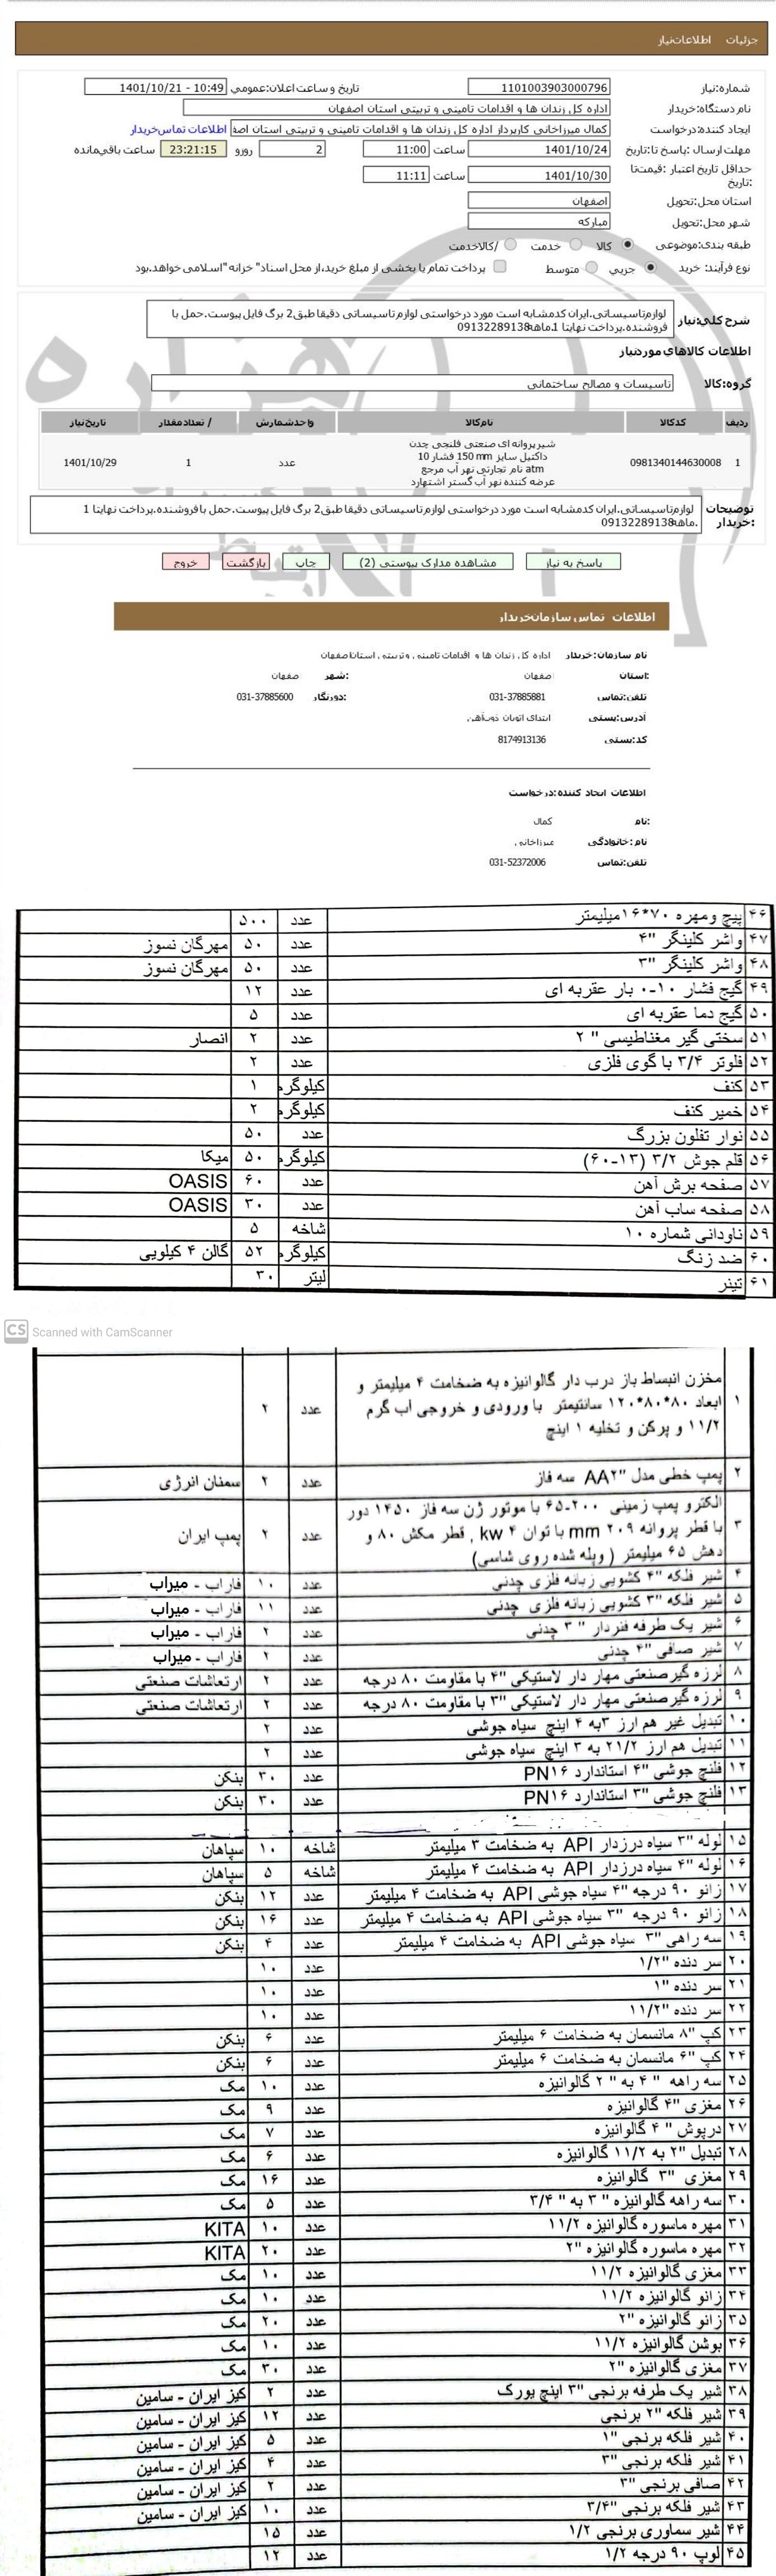 جزئیات اطلاعات نیاز
شماره نیاز: 1101003903000796 تاریخ و ساعت اعلان عمومی: 1401/10/21 - 10:49
نام دستگاه خریدار: اداره کل زندان ها و اقدامات تامینی و تربیتی استان اصفهان
ایجاد کننده درخواست: کمال میرزاخانی کارپرداز اداره کل زندان ها و اقدامات تامینی و تربیتی استان اصف اطلاعات تماس خریدار
مهلت ارسال پاسخ تا: تاریخ: 1401/10/24 ساعت 11:00 2 روز و 23:21:15 ساعت باقی مانده
حداقل تاریخ اعتبار قیمت: تا تاریخ: 1401/10/30 ساعت 11:11
استان محل تحویل: اصفهان
شهر محل تحویل: مبارکه
طبقه بندی موضوعی: کالا خدمت کالا/خدمت
نوع فرآیند خرید: جزیی متوسط پرداخت تمام یا بخشی از مبلغ خرید،از محل "اسناد خزانه اسلامی" خواهد بود.
شرح کلی نیاز: لوازم تاسیساتی.ایران کدمشابه است مورد درخواستی لوازم تاسیساتی دقیقا طبق2 برگ فایل پیوست.حمل با
فروشنده.پرداخت نهایتا 1ماهه.09132289138
اطلاعات کالاهای مورد نیاز
گروه کالا: تاسیسات و مصالح ساختمانی
ردیف کد کالا نام کالا واحد شمارش تعداد / مقدار تاریخ نیاز
1 0981340144630008 شیر پروانه ای صنعتی فلنجی چدن
داکتیل سایز 150 mm فشار 10
atm نام تجارتی نهر آب مرجع
عرضه کننده نهر آب گستر اشتهارد عدد 1 1401/10/29
توضیحات خریدار: لوازم تاسیساتی.ایران کدمشابه است مورد درخواستی لوازم تاسیساتی دقیقا طبق2 برگ فایل پیوست.حمل با فروشنده.پرداخت نهایتا 1
ماهه.09132289138
پاسخ به نیاز مشاهده مدارک پیوستی (2) چاپ بازگشت خروج
اطلاعات تماس سازمان خریدار
نام سازمان خریدار: اداره کل زندان ها و اقدامات تامینی و تربیتی استان اصفهان
استان: اصفهان شهر: اصفهان
تلفن تماس: 031-37885881 دورنگار: 031-37885600
آدرس پستی: ابتدای اتوبان ذوب آهن
کد پستی: 8174913136
اطلاعات ایجاد کننده درخواست:
نام: کمال
نام خانوادگی: میرزاخانی
تلفن تماس: 031-52372006
۴۶ پیچ ومهره ۷۰*۱۶میلیمتر عدد ۵۰۰
۴۷ واشر کلینگر "۴ عدد ۵۰ مهرگان نسوز
۴۸ واشر کلینگر "۳ عدد ۵۰ مهرگان نسوز
۴۹ گیج فشار ۱۰-۰ بار عقربه ای عدد ۱۲
۵۰ گیج دما عقربه ای عدد ۵
۵۱ سختی گیر مغناطیسی " ۲ عدد ۲ انصار
۵۲ فلوتر ۳/۴ با گوی فلزی عدد ۲
۵۳ کنف کیلوگرم ۱
۵۴ خمیر کنف کیلوگرم ۲
۵۵ نوار تفلون بزرگ عدد ۵۰
۵۶ قلم جوش ۳/۲ (۱۳-۶۰) کیلوگرم ۵۰ میکا
۵۷ صفحه برش آهن عدد ۶۰ OASIS
۵۸ صفحه ساب آهن عدد ۳۰ OASIS
۵۹ ناودانی شماره ۱۰ شاخه ۵
۶۰ ضد زنگ کیلوگرم ۵۲ گالن ۴ کیلویی
۶۱ تینر لیتر ۳۰
CS Scanned with CamScanner
۱ مخزن انبساط باز درب دار گالوانیزه به ضخامت ۴ میلیمتر و
ابعاد ۸۰*۸۰*۱۲۰ سانتیمتر با ورودی و خروجی آب گرم
۱۱/۲ و پرکن و تخلیه ۱ اینچ عدد ۲
۲ پمپ خطی مدل "AA۲ سه فاز عدد ۲ سمنان انرژی
۳ الکترو پمپ زمینی ۲۰۰-۶۵ با موتور ژن سه فاز ۱۴۵۰ دور
با قطر پروانه ۲۰۹ mm با توان ۴ kw , قطر مکش ۸۰ و
دهش ۶۵ میلیمتر ( وپله شده روی شاسی) عدد ۲ پمپ ایران
۴ شیر فلکه "۴ کشویی زبانه فلزی چدنی عدد ۱۰ فاراب - میراب
۵ شیر فلکه "۳ کشویی زبانه فلزی چدنی عدد ۱۱ فاراب - میراب
۶ شیر یک طرفه فنردار " ۳ چدنی عدد ۲ فاراب - میراب
۷ شیر صافی "۴ چدنی عدد ۲ فاراب - میراب
۸ لرزه گیرصنعتی مهار دار لاستیکی "۴ با مقاومت ۸۰ درجه عدد ۲ ارتعاشات صنعتی
۹ لرزه گیرصنعتی مهار دار لاستیکی "۳ با مقاومت ۸۰ درجه عدد ۲ ارتعاشات صنعتی
۱۰ تبدیل غیر هم ارز ۳به ۴ اینچ سیاه جوشی عدد ۲
۱۱ تبدیل هم ارز ۲۱/۲ به ۳ اینچ سیاه جوشی عدد ۲
۱۲ فلنج جوشی "۴ استاندارد PN۱۶ عدد ۳۰ بنکن
۱۳ فلنج جوشی "۳ استاندارد PN۱۶ عدد ۳۰ بنکن
۱۵ لوله "۳ سیاه درزدار API به ضخامت ۳ میلیمتر شاخه ۱۰ سپاهان
۱۶ لوله "۴ سیاه درزدار API به ضخامت ۴ میلیمتر شاخه ۵ سپاهان
۱۷ زانو ۹۰ درجه "۴ سیاه جوشی API به ضخامت ۴ میلیمتر عدد ۱۲ بنکن
۱۸ زانو ۹۰ درجه "۳ سیاه جوشی API به ضخامت ۴ میلیمتر عدد ۱۶ بنکن
۱۹ سه راهی "۳ سیاه جوشی API به ضخامت ۴ میلیمتر عدد ۴ بنکن
۲۰ سر دنده "۱/۲ عدد ۱۰
۲۱ سر دنده "۱ عدد ۱۰
۲۲ سر دنده "۱۱/۲ عدد ۱۰
۲۳ کپ "۸ مانسمان به ضخامت ۶ میلیمتر عدد ۶ بنکن
۲۴ کپ "۶ مانسمان به ضخامت ۶ میلیمتر عدد ۶ بنکن
۲۵ سه راهه " ۴ به " ۲ گالوانیزه عدد ۱۰ مک
۲۶ مغزی "۴ گالوانیزه عدد ۹ مک
۲۷ درپوش " ۴ گالوانیزه عدد ۷ مک
۲۸ تبدیل "۲ به ۱۱/۲ گالوانیزه عدد ۶ مک
۲۹ مغزی "۳ گالوانیزه عدد ۱۶ مک
۳۰ سه راهه گالوانیزه " ۳ به " ۳/۴ عدد ۵ مک
۳۱ مهره ماسوره گالوانیزه ۱۱/۲ عدد ۱۰ KITA
۳۲ مهره ماسوره گالوانیزه "۲ عدد ۲۰ KITA
۳۳ مغزی گالوانیزه ۱۱/۲ عدد ۱۰ مک
۳۴ زانو گالوانیزه ۱۱/۲ عدد ۱۰ مک
۳۵ زانو گالوانیزه "۲ عدد ۲۰ مک
۳۶ بوشن گالوانیزه ۱۱/۲ عدد ۱۰ مک
۳۷ مغزی گالوانیزه "۲ عدد ۳۰ مک
۳۸ شیر یک طرفه برنجی "۳ اینچ یورک عدد ۲ کیز ایران - سامین
۳۹ شیر فلکه "۲ برنجی عدد ۱۲ کیز ایران - سامین
۴۰ شیر فلکه برنجی "۱ عدد ۵ کیز ایران - سامین
۴۱ شیر فلکه برنجی "۳ عدد ۴ کیز ایران - سامین
۴۲ صافی برنجی "۳ عدد ۲ کیز ایران - سامین
۴۳ شیر فلکه برنجی "۳/۴ عدد ۱۰ کیز ایران - سامین
۴۴ شیر سماوری برنجی ۱/۲ عدد ۱۵
۴۵ لوپ ۹۰ درجه ۱/۲ عدد ۱۲